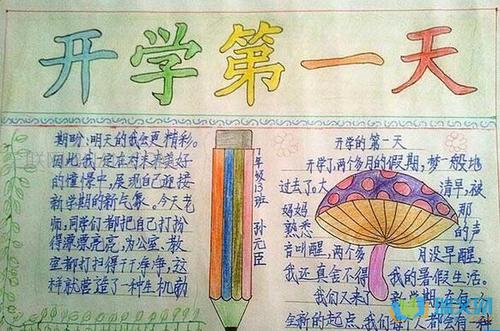 开学第一天
期盼:明天的我会更精彩。
因此我一定在对未来美好
的憧憬中,展现自己迎接
新学期的新气象。今天老
师,同学们都把自己打扮
得漂漂亮亮,办公室、教
室都打扫得干干净净,这
样就营造了一种生机勃
年级13班 孙元臣
开学的第一天
开学了,两个多月的假期,梦一般地
过去了。大清早,被
妈妈那
熟悉的声
音叫醒,两个多月没早醒,
我还真舍不得我的暑假生活。
我们又来了
全新的起点,我们每个人都会有一